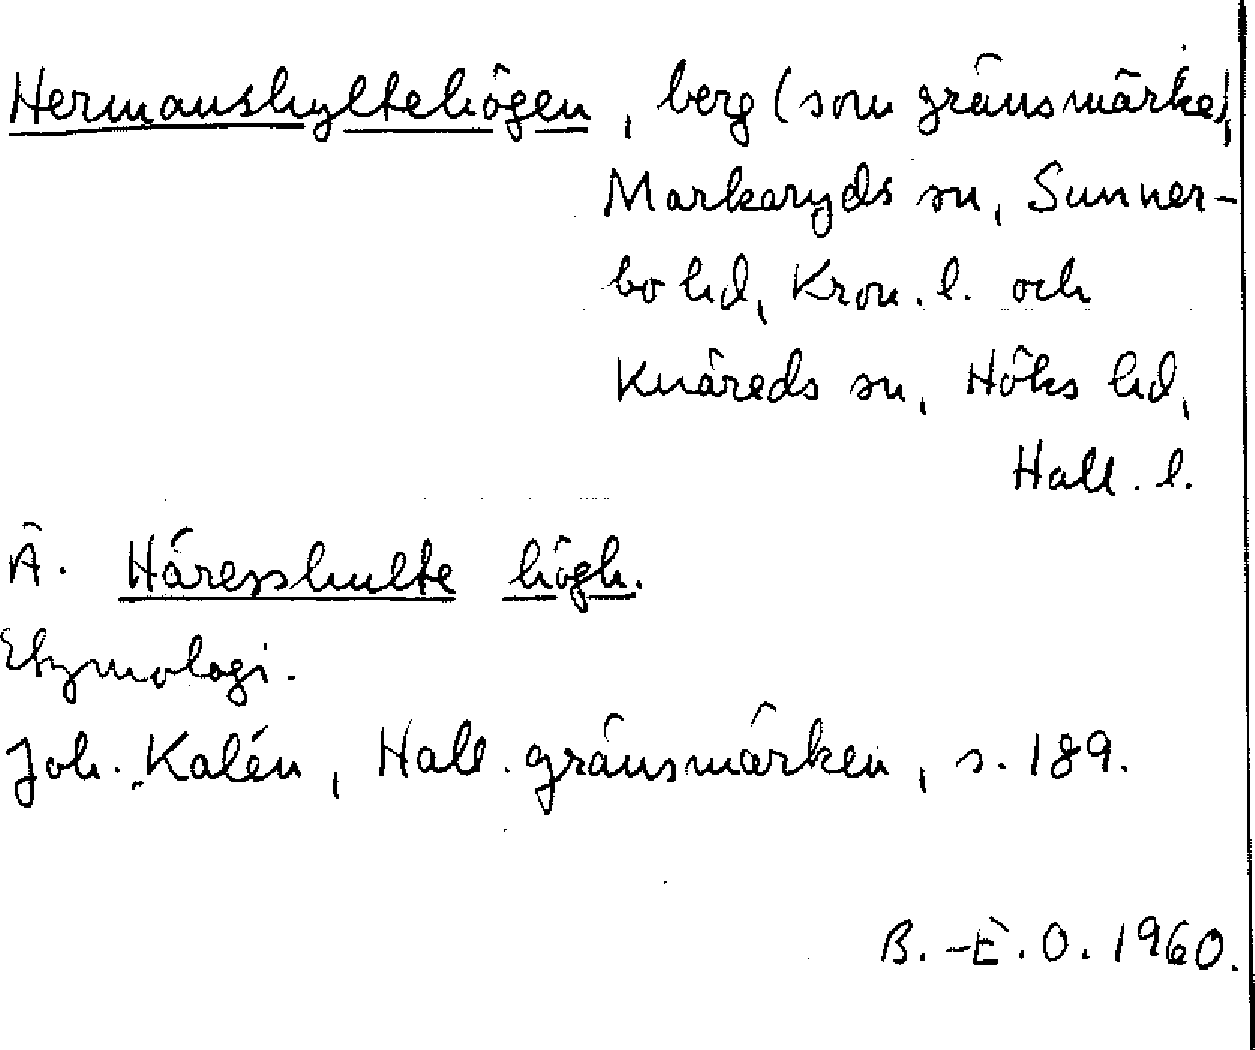 Hermanshyltehögen, berg (som gränsmärke),
Markaryds sn, Sunner-
bo hd, Kron. l. och
Knäreds sn, Höks hd,
Hall. l.
Ä. Häresshulte högh.
Etymologi.
Joh. Kalén, Hall. gränsmärken, s. 189.
B.-E. O. 1960.